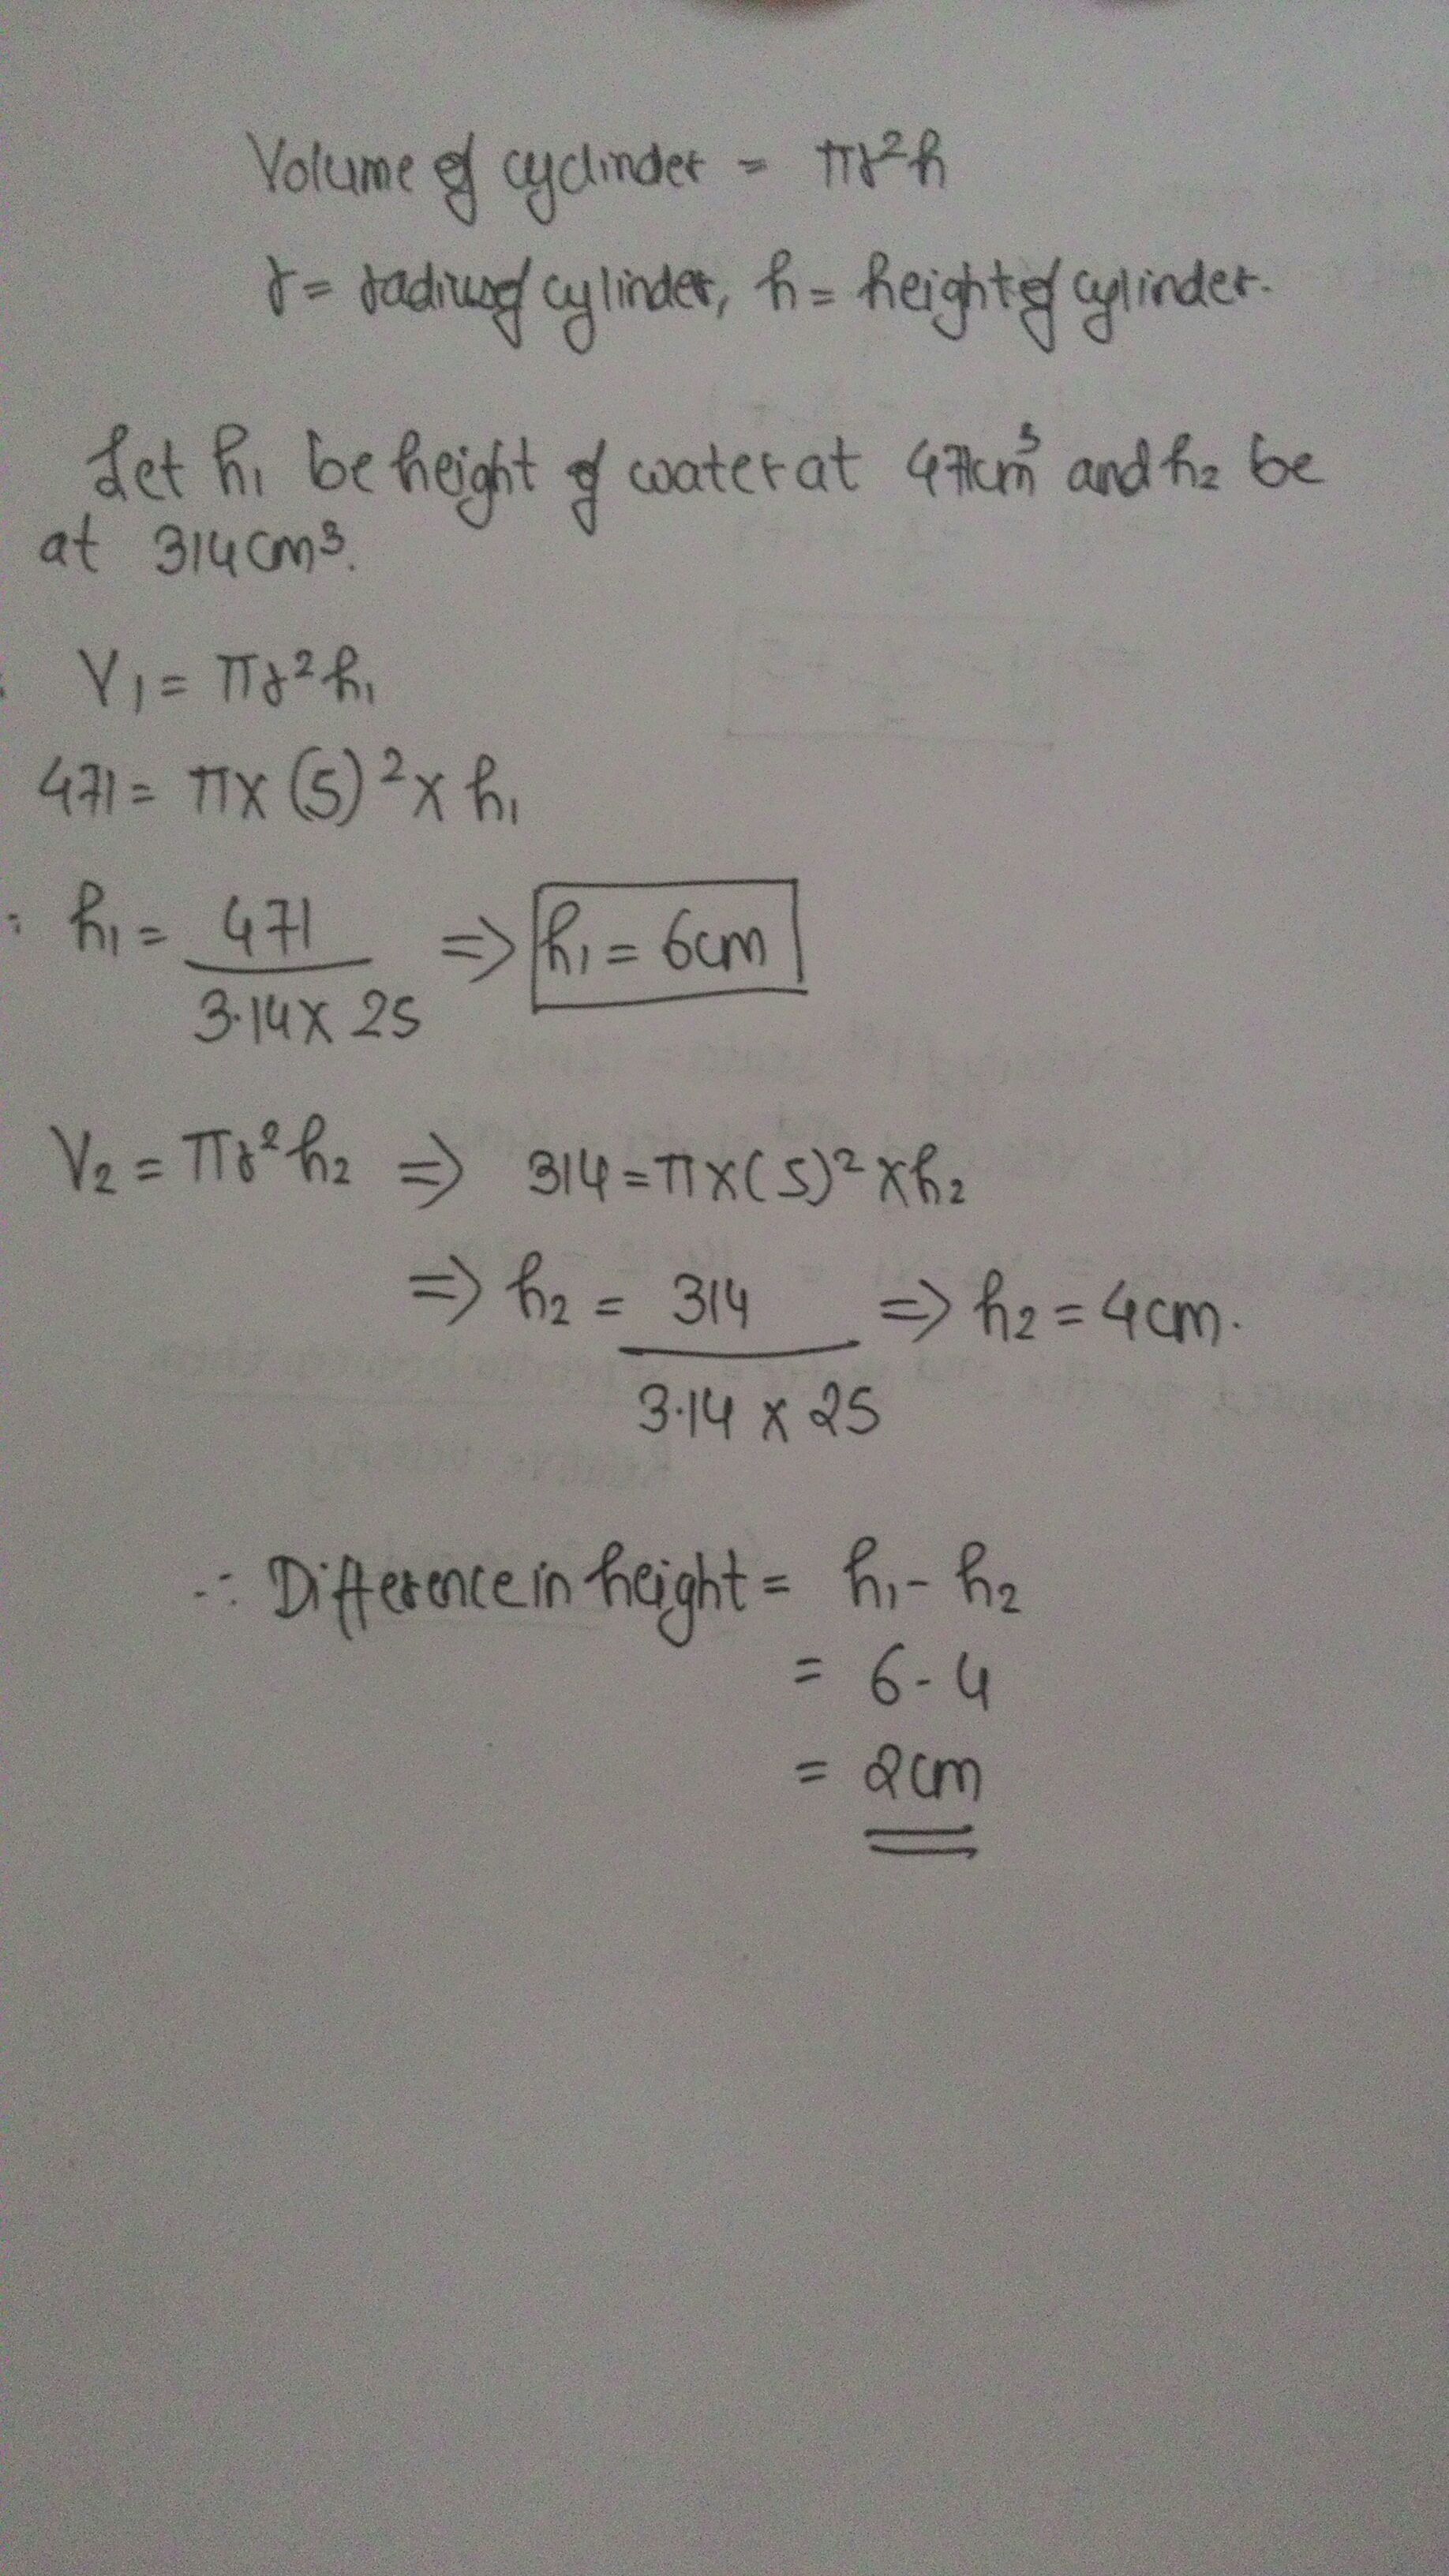 Volume of cyclinder = πr²h
r = radius of cylinder, h = height of cylinder.
Let h₁ be height of water at 471cm³ and h₂ be
at 314cm³.
V₁ = πr²h₁
471 = π × (5)² × h₁
h₁ = 471 / 3.14 × 25 ⇒ h₁ = 6cm
V₂ = πr²h₂ ⇒ 314 = π × (5)² × h₂
⇒ h₂ = 314 / 3.14 × 25 ⇒ h₂ = 4cm.
∴ Difference in height = h₁ - h₂
= 6 - 4
= 2cm